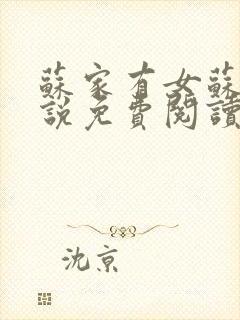 蘇家有女蘇
說免費閱讀
沈京